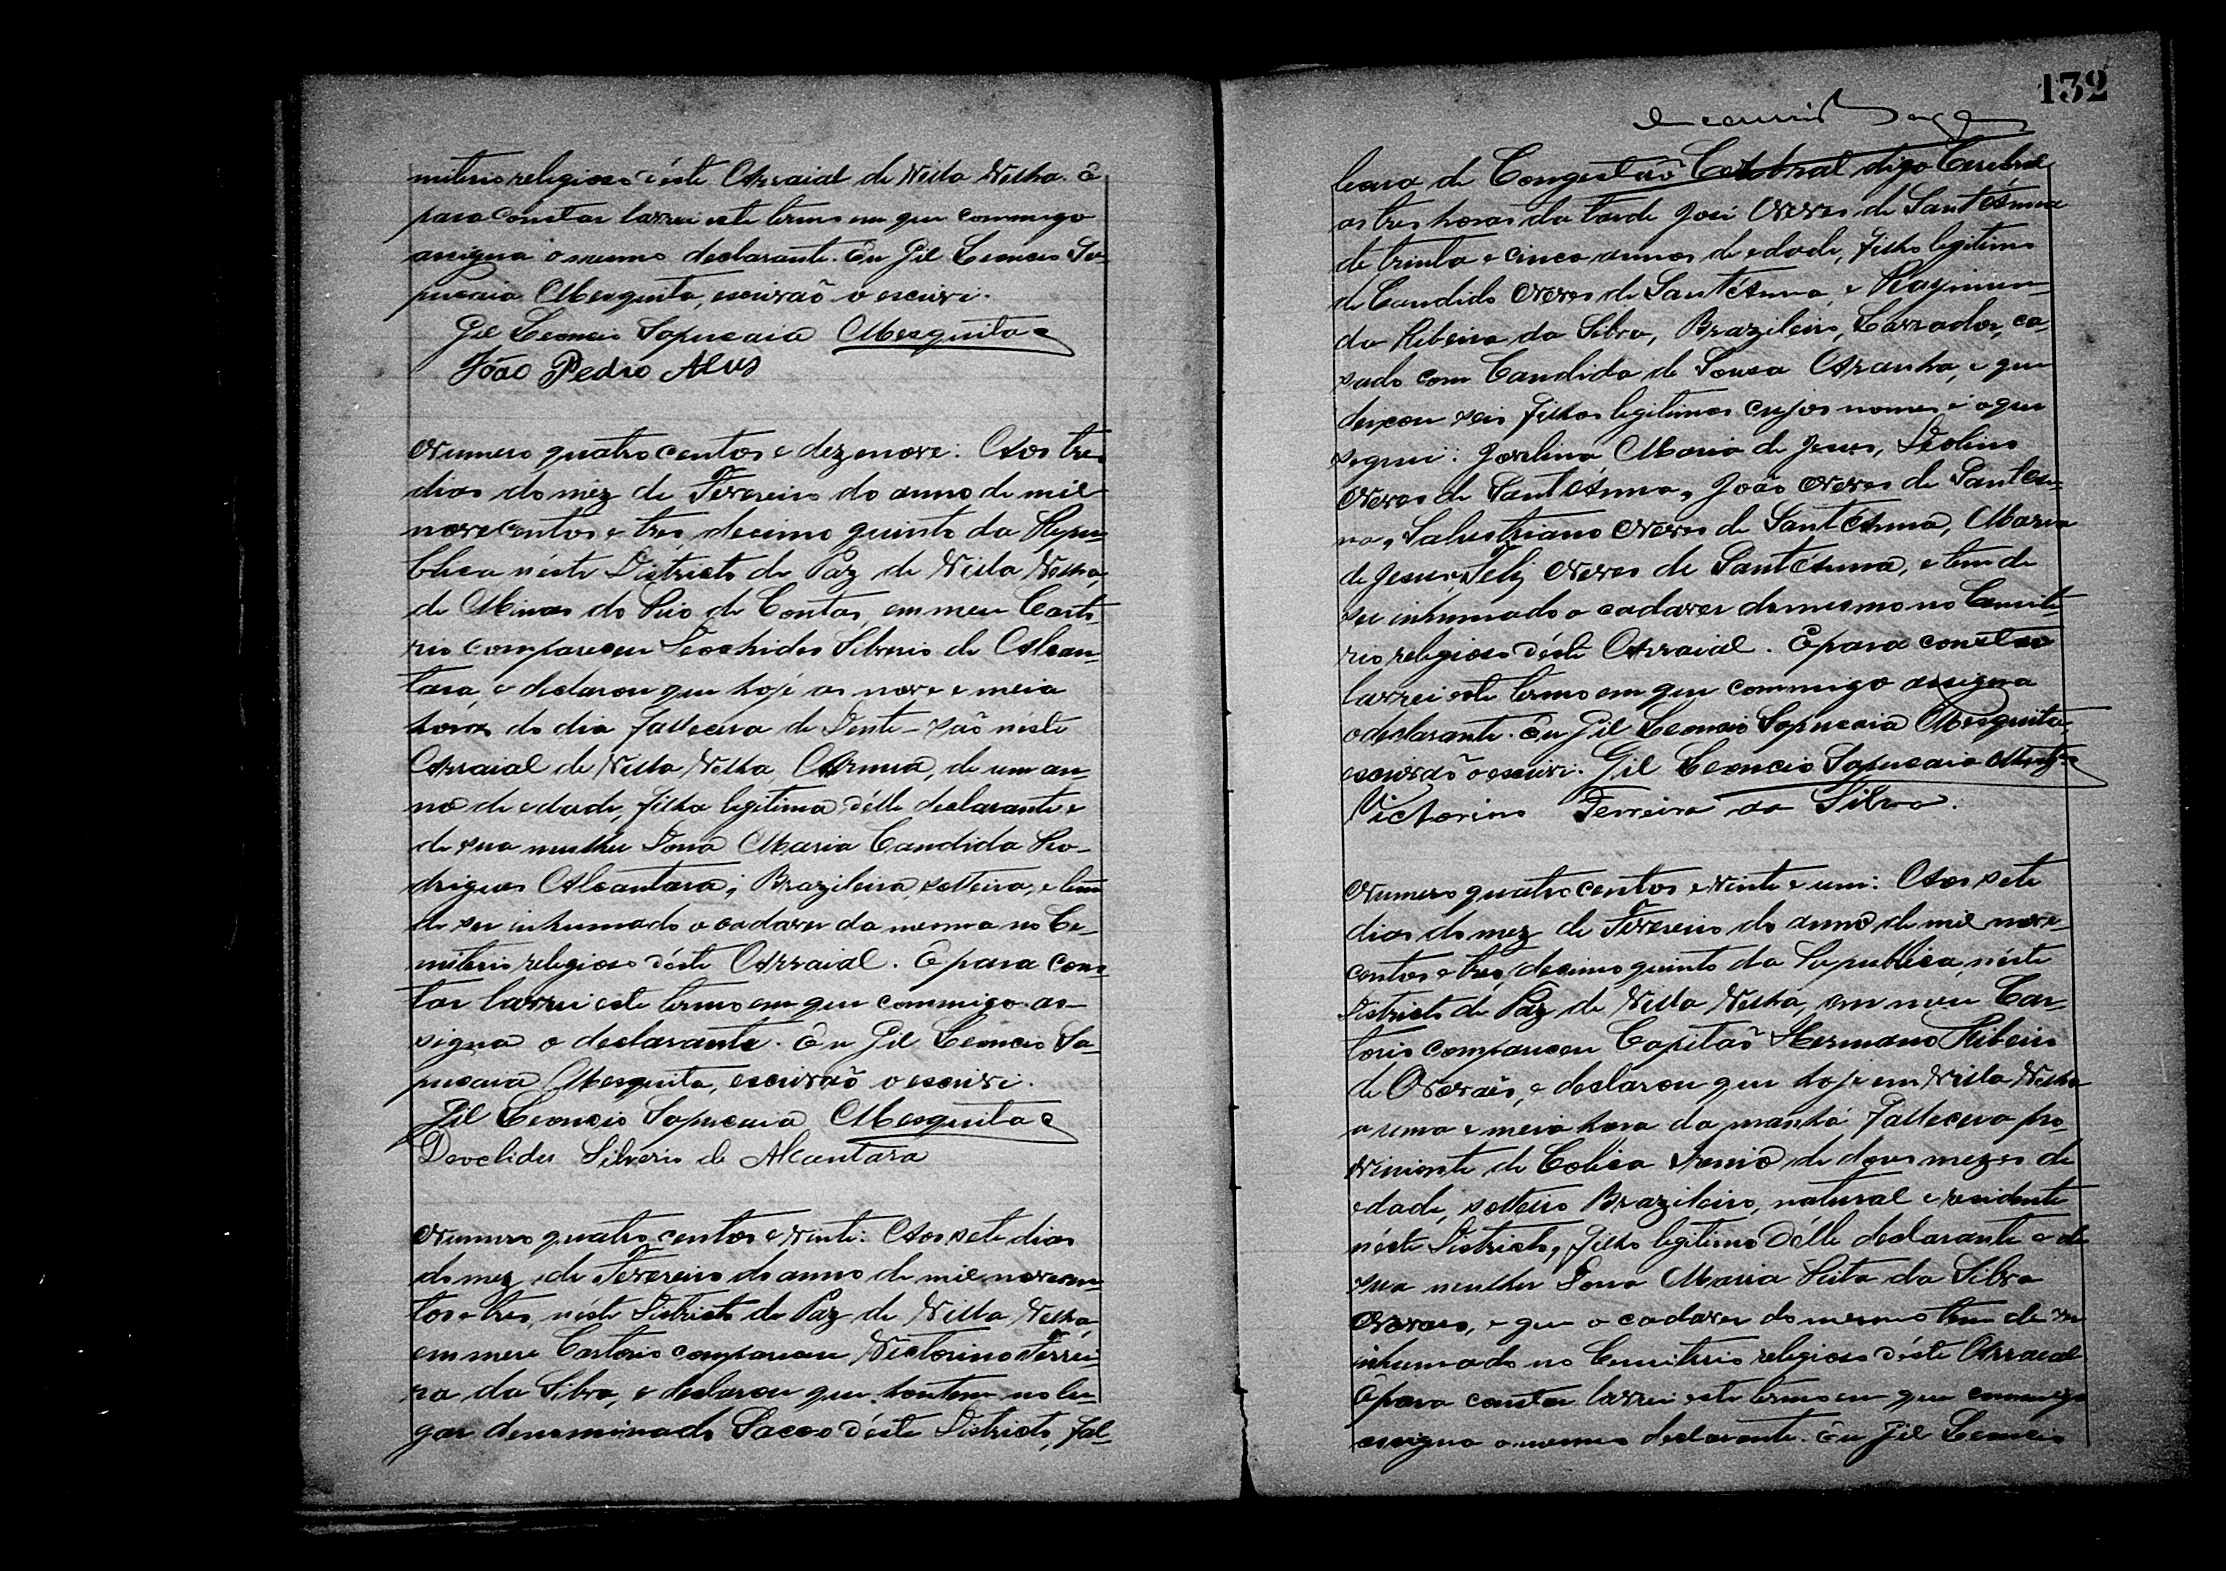 miterio religioso d'éste Arraial de Villa Velha. E
para constar lavrei este termo em que commigo
assigna o mesmo declarante. Eu Gil Leoncio Sa-
pucaia Mesquita, escrivaõ o escrivi.
Gil Leoncio Sapucaia Mesquita
João Pedro Alves
Numero quatro centos e dezenove: Aos tres
dias do mêz de Fevereiro do anno de mil
novecentos e tres, decimo quinto da Repu-
blica n'éste Districto de Paz de Villa Velha,
de Minas do Rio de Contas, em meu Carto-
rio compareceu Deoclides Silverio de Alcan-
tara, e declarou que hoje as nove e meia
horas do dia fallecera de Dentição n'éste
Arraial de Villa Velha, Anna, de um an-
no de edade, filha legitima d'élle declarante e
de sua mulher Dona Maria Candida Ro-
drigues Alcantara; Brazileira, solteira, e tem
de ser inhumado o cadaver da mesma no Ce-
miterio religioso d'éste Arraial. E para cons-
tar lavrei este termo em que commigo as-
signa o declarante. Eu Gil Leoncio Sa-
pucaia Mesquita, escrivaõ o escrivi.
Gil Leoncio Sapucaia Mesquita
Deoclides Silverio de Alcantara
Numero quatro centos e vinte: Aos sete dias
do mez de Fevereiro do anno de mil novecen-
tos e tres, n'éste Districto de Paz de Villa Velha,
em meu Cartorio compareceu Victorino Ferrei-
ra da Silva, e declarou que hontem no lu-
gar denominado Sacco d'éste Districto, fal-
132
lecera de Congestaõ Cetebral digo Cerebral
as tres horas da tarde José Neves de Sant'Anna
de trinta e cinco annos de edade, filho legitimo
de Candido Neves de Sant'Anna e Raymun-
da Ribeira da Silva, Brazileiro, Lavrador, ca-
sado com Candida de Sousa Aranha, e que
deixou seis filhos legitimos cujos nomes é o que
segue: Maria de Jesus,
Neves de Sant'Anna, João Neves de Sant'An-
na, Salustriano Neves de Sant'Anna, Maria
de Jesus, e Feliz Neves de Sant'Anna, e tem de
ser inhumado o cadaver do mesmo no Cemite-
rio religioso d'éste Arraial. E para constar
lavrei este termo em que commigo assigna
o declarante. Eu Gil Leoncio Sapucaia Mesquita,
escrivaõ o escrivi. Gil Leoncio Sapucaia Mesqta
Victorino Ferreira da Silva.
Numero quatro centos e vinte e um: Aos sete
dias do mez de Fevereiro do anno de mil nove-
centos e tres, decimo quinto da Republica, n'éste
Districto de Paz de Villa Velha, em meu Car-
torio compareceu Capitaõ Hermano Ribeiro
de Novaes, e declarou que hoje em Villa Velha
a uma e meia hora da manhã fallecera pro-
viniente de Colica de dous mezes de
edade, solteiro Brazileiro, natural e residente
n'éste Districto, filho legitimo d'élle declarante e de
sua mulher Dona Maria Rita da Silva
Novaes, e que o cadaver do mesmo tem de ser
inhumado no Cemiterio religioso d'éste Arraial
E para constar lavrei este termo em que commigo
assigna o mesmo declarante. Eu Gil Leoncio